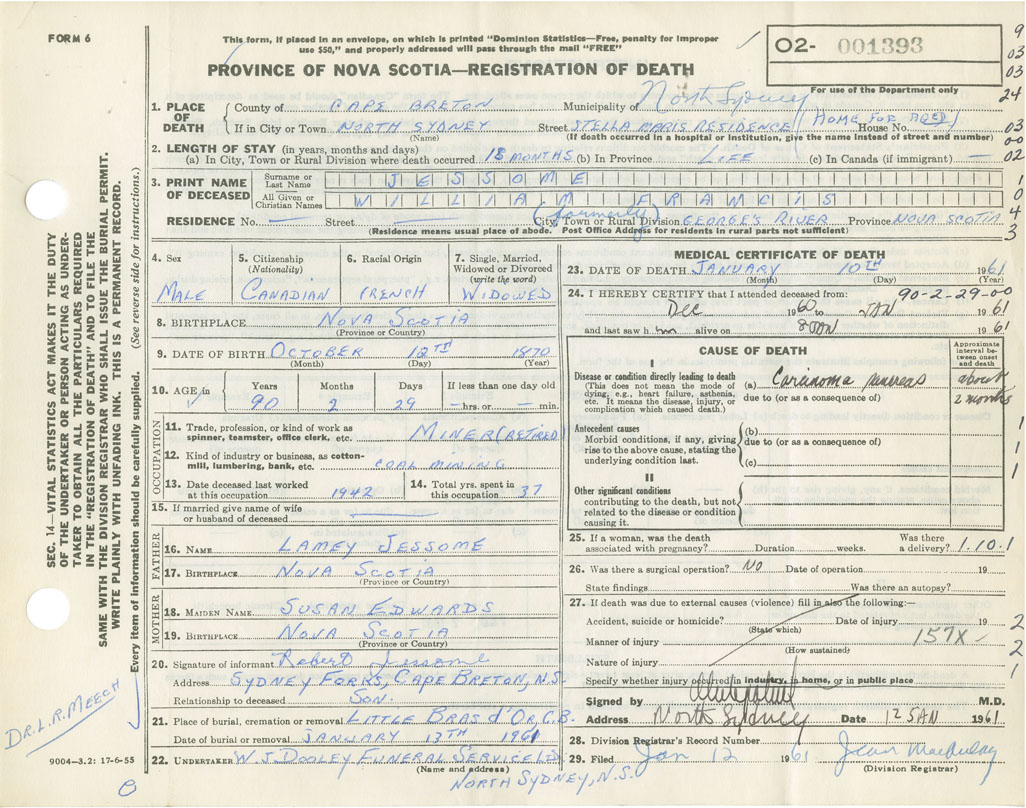 FORM 6
This form, if placed in an envelope, on which is printed "Dominion Statistics—Free, penalty for improper
use $50," and properly addressed will pass through the mail "FREE"
PROVINCE OF NOVA SCOTIA—REGISTRATION OF DEATH
02- 001393
For use of the Department only
9
03
03
24
03
00
02
1
0
4
3
1. PLACE OF DEATH
County of CAPE BRETON Municipality of North Sydney
If in City or Town NORTH SYDNEY Street STELLA MARIS RESIDENCE House No. (HOME FOR AGED)
(Name) (If death occurred in a hospital or institution, give the name instead of street and number)
2. LENGTH OF STAY (in years, months and days)
(a) In City, Town or Rural Division where death occurred 18 MONTHS (b) In Province LIFE (c) In Canada (if immigrant) —
3. PRINT NAME OF DECEASED
Surname or Last Name JESSOME
All Given or Christian Names WILLIAM FRANCIS
RESIDENCE No. — Street — (formerly) City, Town or Rural Division GEORGES RIVER Province NOVA SCOTIA
(Residence means usual place of abode. Post Office Address for residents in rural parts not sufficient)
4. Sex
MALE
5. Citizenship (Nationality)
CANADIAN
6. Racial Origin
FRENCH
7. Single, Married, Widowed or Divorced (write the word)
WIDOWED
8. BIRTHPLACE NOVA SCOTIA
(Province or Country)
9. DATE OF BIRTH OCTOBER 12TH 1870
(Month) (Day) (Year)
10. AGE in Years Months Days If less than one day old
90 2 29 — hrs. or — min.
OCCUPATION
11. Trade, profession, or kind of work as spinner, teamster, office clerk, etc. MINER (RETIRED)
12. Kind of industry or business, as cotton-mill, lumbering, bank, etc. COAL MINING
13. Date deceased last worked at this occupation 1942
14. Total yrs. spent in this occupation 37
15. If married give name of wife or husband of deceased —
FATHER
16. NAME LAMEY JESSOME
17. BIRTHPLACE NOVA SCOTIA
(Province or Country)
MOTHER
18. MAIDEN NAME SUSAN EDWARDS
19. BIRTHPLACE NOVA SCOTIA
(Province or Country)
20. Signature of informant Robert Jessome
Address SYDNEY FORKS, CAPE BRETON, N.S.
Relationship to deceased SON
21. Place of burial, cremation or removal LITTLE BRAS d'OR, C.B.
Date of burial or removal JANUARY 13TH 1961
22. UNDERTAKER W J DOOLEY FUNERAL SERVICE LTD
(Name and address)
NORTH SYDNEY, N.S.
MEDICAL CERTIFICATE OF DEATH
23. DATE OF DEATH JANUARY 10TH 1961
(Month) (Day) (Year)
24. I HEREBY CERTIFY that I attended deceased from: 90-2-29-00
Dec 1960 to JAN 1961
and last saw him alive on 8 JAN 1961
CAUSE OF DEATH
Approximate interval between onset and death
I
Disease or condition directly leading to death
(This does not mean the mode of dying, e.g., heart failure, asthenia, etc. It means the disease, injury, or complication which caused death.)
(a) Carcinoma pancreas about 2 months
due to (or as a consequence of)
Antecedent causes
Morbid conditions, if any, giving rise to the above cause, stating the underlying condition last.
(b)
due to (or as a consequence of)
(c)
1
1
1
II
Other significant conditions
contributing to the death, but not related to the disease or condition causing it.
25. If a woman, was the death associated with pregnancy? Duration weeks. Was there a delivery? 1.10.1
26. Was there a surgical operation? NO Date of operation 19
State findings Was there an autopsy?
27. If death was due to external causes (violence) fill in also the following:—
Accident, suicide or homicide? Date of injury 19
(State which)
Manner of injury 157X
(How sustained)
Nature of injury
Specify whether injury occurred in industry, in home, or in public place
2
2
1
Signed by M.D.
Address North Sydney Date 12 JAN 1961
28. Division Registrar's Record Number
29. Filed Jan 12 1961
(Division Registrar)
SEC. 14—VITAL STATISTICS ACT MAKES IT THE DUTY
OF THE UNDERTAKER OR PERSON ACTING AS UNDER-
TAKER TO OBTAIN ALL THE PARTICULARS REQUIRED
IN THE "REGISTRATION OF DEATH" AND TO FILE THE
SAME WITH THE DIVISION REGISTRAR WHO SHALL ISSUE THE BURIAL PERMIT.
WRITE PLAINLY WITH UNFADING INK. THIS IS A PERMANENT RECORD.
Every item of information should be carefully supplied. (See reverse side for instructions.)
DR. L.R. MEECH
9004—3.2: 17-6-55